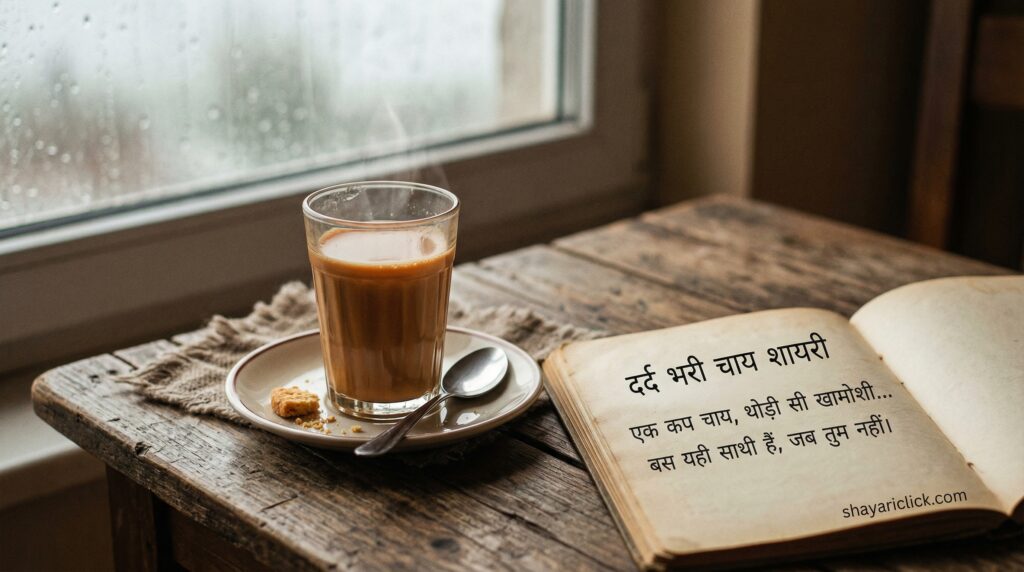 दर्द भरी चाय शायरी
एक कप चाय, थोड़ी सी खामोशी...
बस यही साथी हैं, जब तुम नहीं।
shayariclick.com